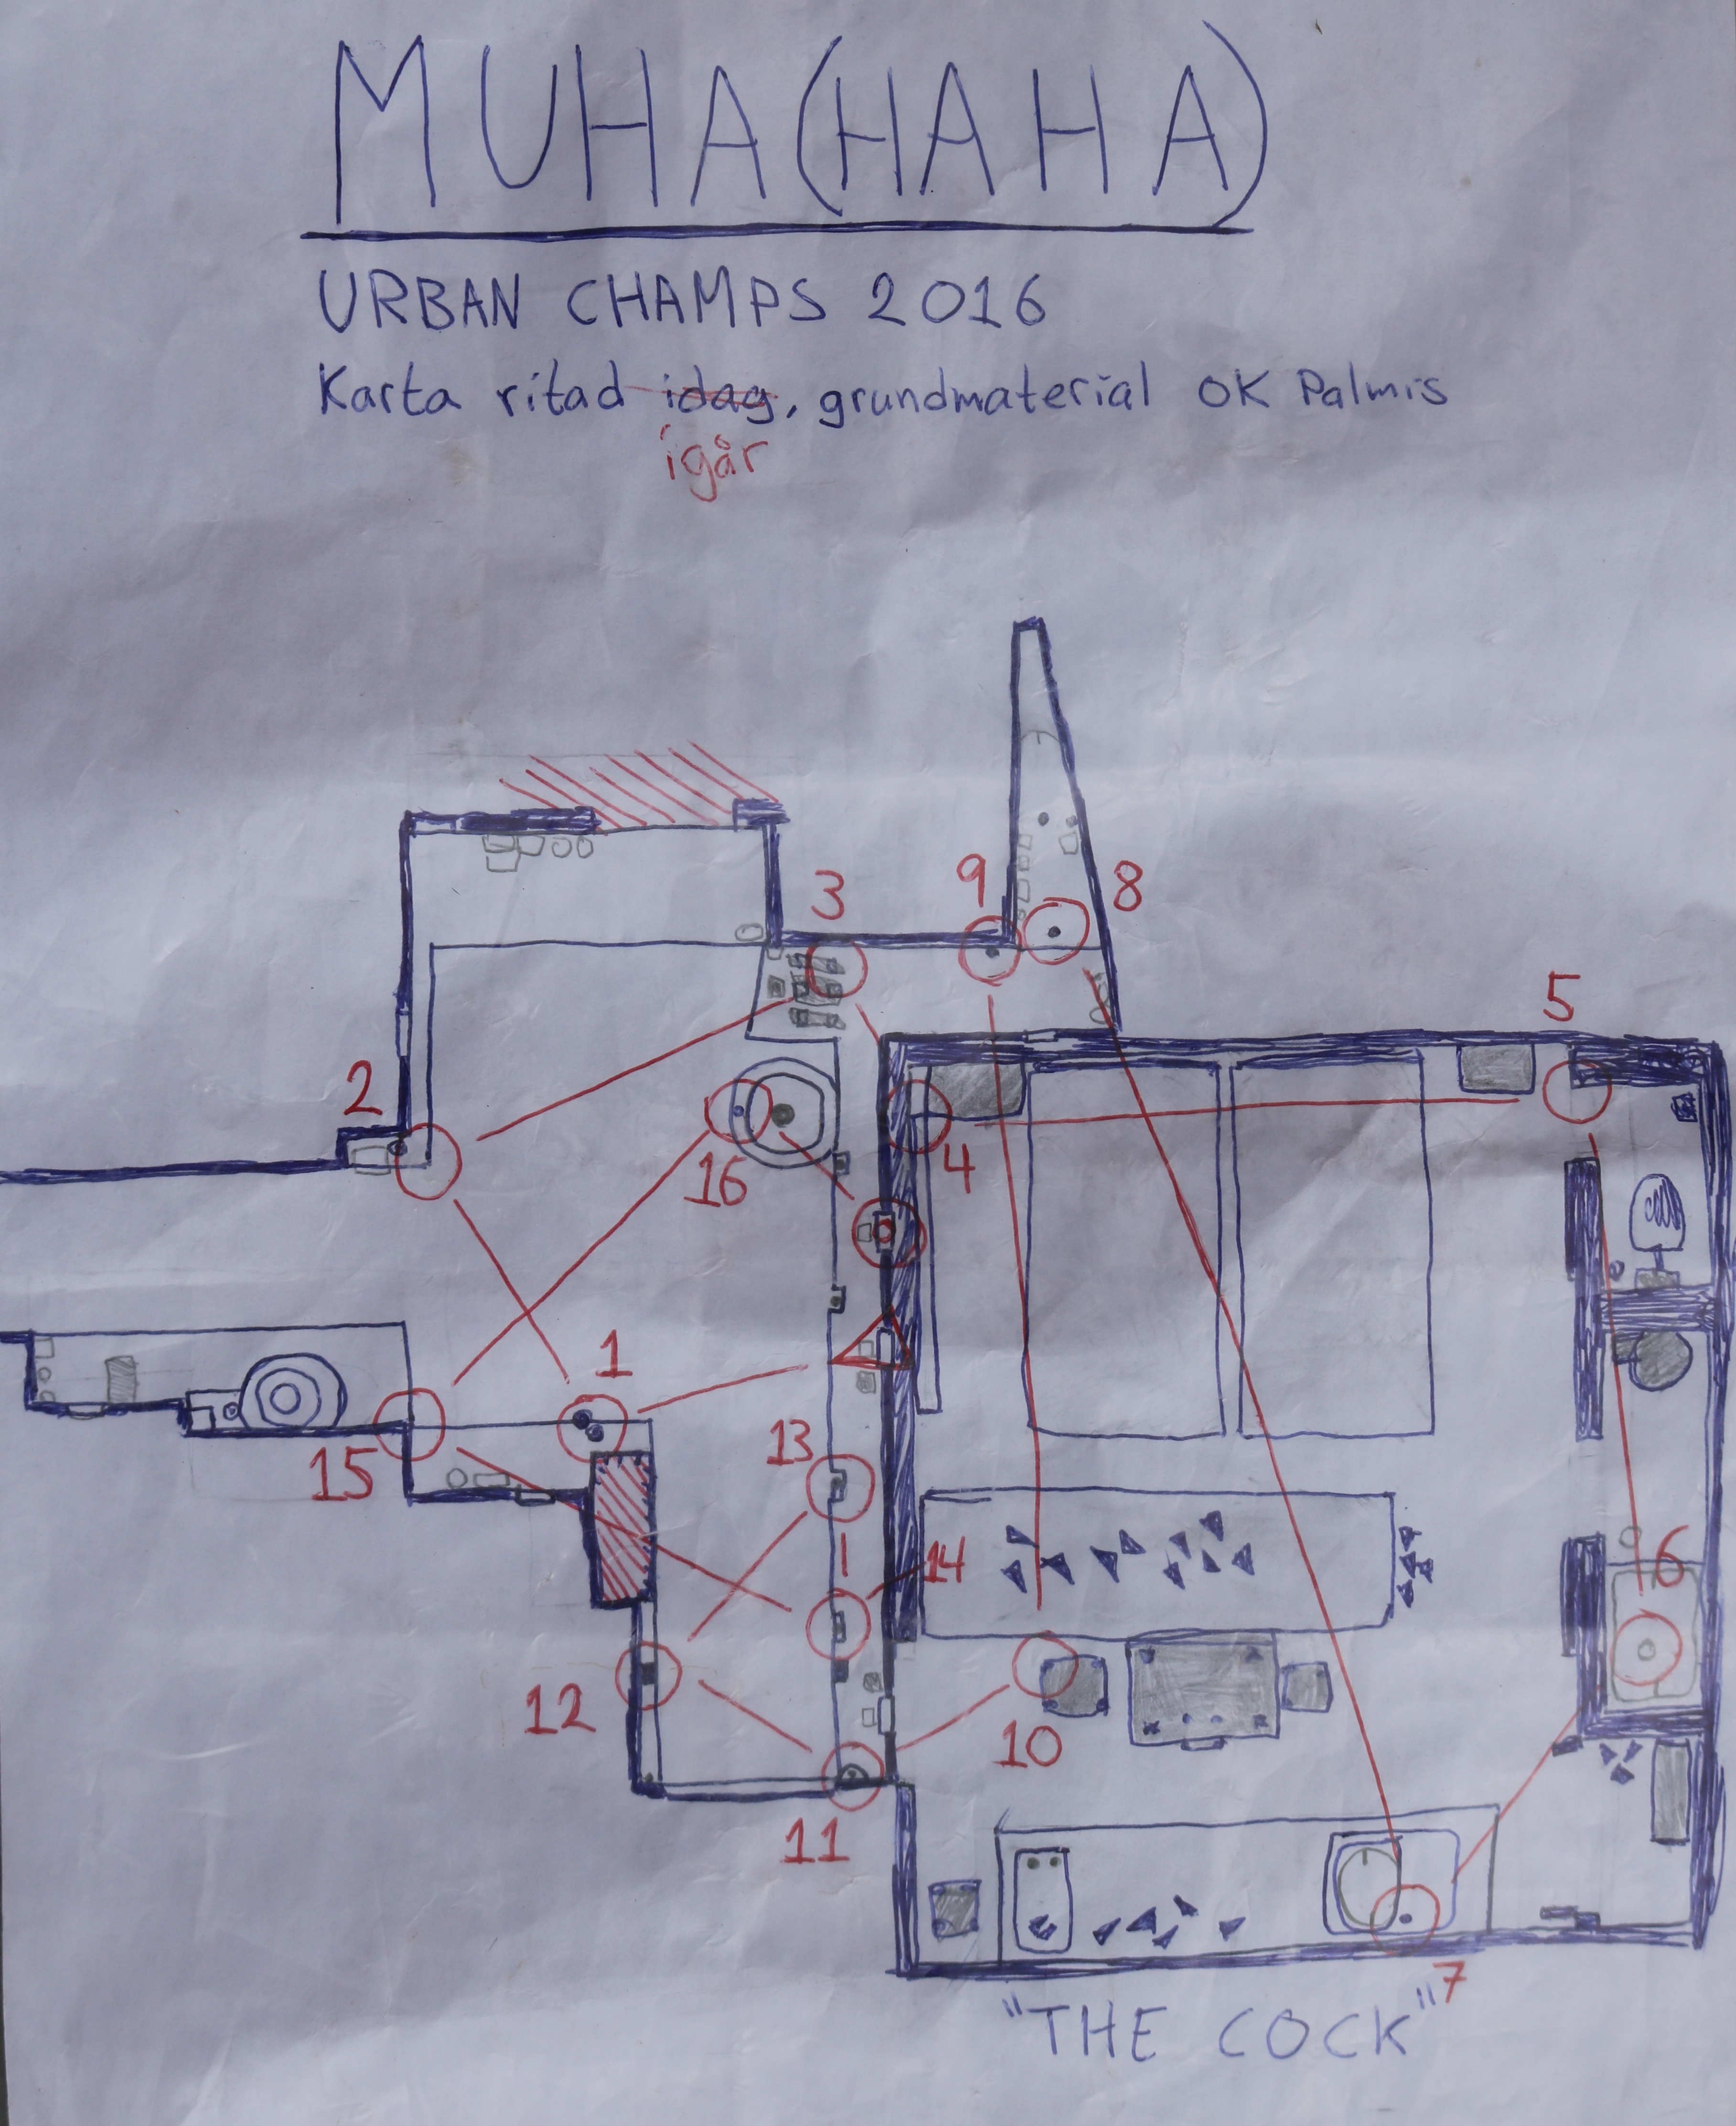 MUHA(HAHA)
URBAN CHAMPS 2016
Karta ritad idag, grundmaterial OK Palmis
igår
3
9
8
5
2
16
4
1
15
13
14
6
12
10
11
7
"THE COCK"